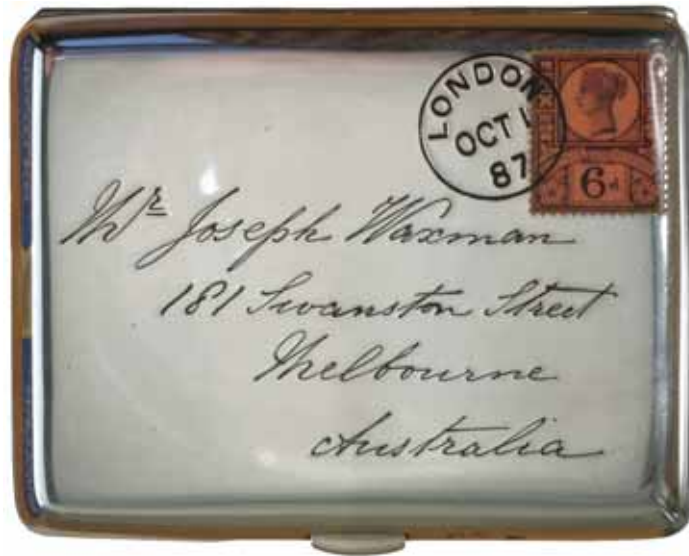 LONDON
OCT 1
87
6d
Mr Joseph Waxman
181 Swanston Street
Melbourne
Australia